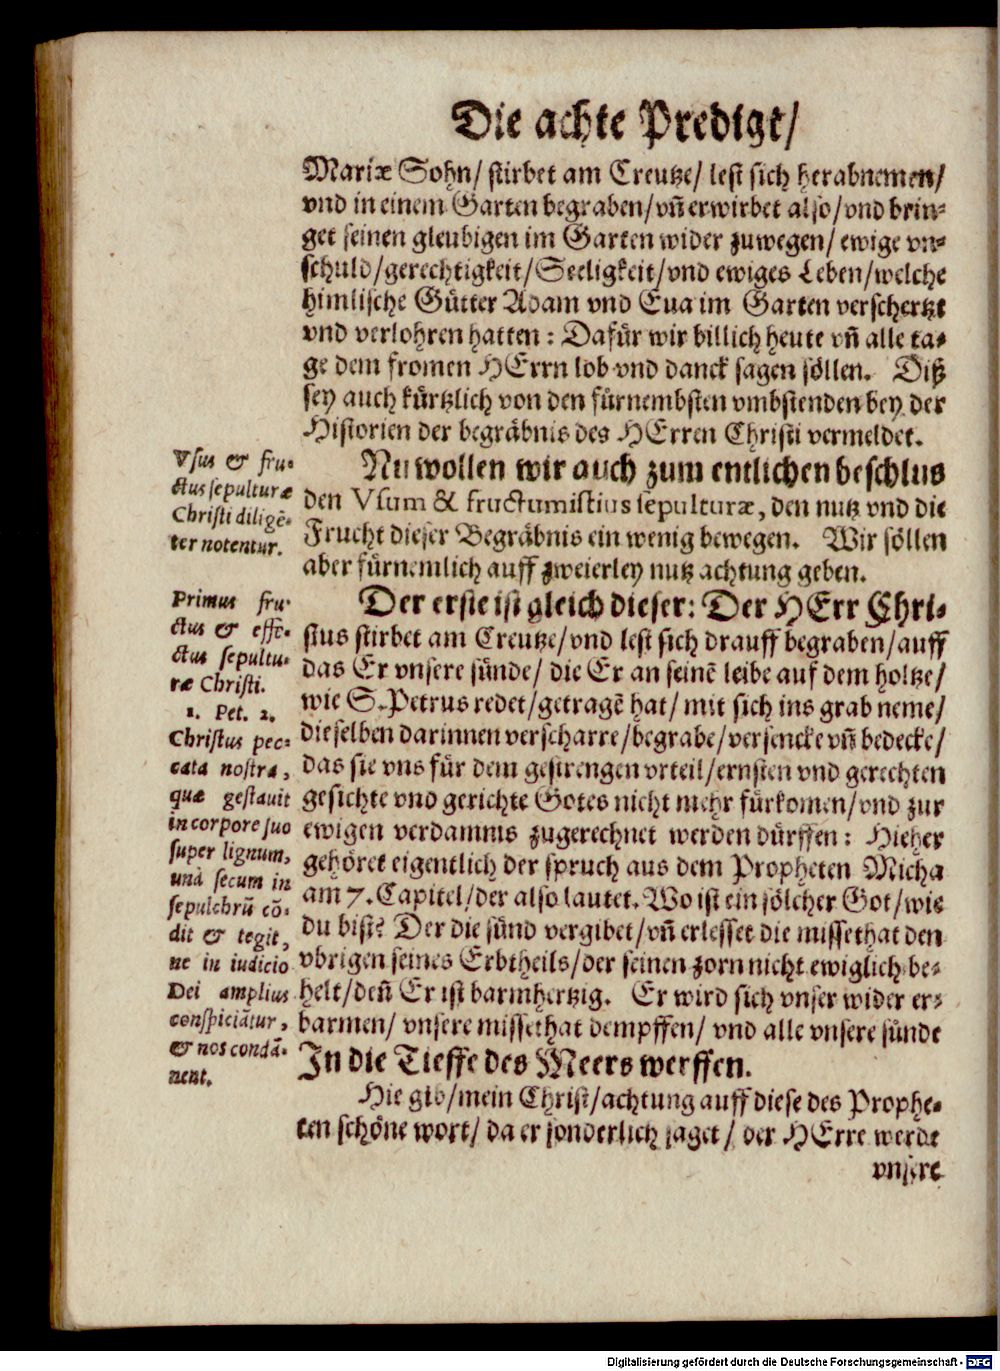 Die achte Predigt/
Mariæ Sohn/ stirbet am Creutze/ lest sich herabnemen/
vnd in einem Garten begraben/ vñ erwirbet also/ vnd brin-
get seinen gleubigen im Garten wider zuwegen/ ewige vn-
schuld/ gerechtigkeit/ Seeligkeit/ vnd ewiges Leben/ welche
himlische Gütter Adam vnd Eua im Garten verschertzt
vnd verlohren hatten: Dafür wir billich heute vñ alle ta-
ge dem fromen HErrn lob vnd danck sagen söllen. Diß
sey auch kürtzlich von den fürnembsten vmbstenden bey der
Historien der begräbnis des HErren Christi vermeldet.
Nu wollen wir auch zum entlichen beschlus
den Vsum & fructum istius sepulturæ, den nutz vnd die
Frucht dieser Begräbnis ein wenig bewegen. Wir söllen
aber fürnemlich auff zweierley nutz achtung geben.
Der erste ist gleich dieser: Der HErr Chri-
stus stirbet am Creutze/ vnd lest sich drauff begraben/ auff
das Er vnsere sünde/ die Er an seinẽ leibe auf dem holtze/
wie S. Petrus redet/ getragẽ hat/ mit sich ins grab neme/
dieselben darinnen verscharre/ begrabe/ versencke vñ bedecke/
das sie vns für dem gestrengen vrteil/ ernsten vnd gerechten
gesichte vnd gerichte Gotes nicht mehr fürkomen/ vnd zur
ewigen verdamnis zugerechnet werden dürffen: Hieher
gehöret eigentlich der spruch aus dem Propheten Micha
am 7. Capitel/ der also lautet. Wo ist ein sölcher Got/ wie
du bist? Der die sünd vergibet/ vñ erlesset die missethat den
vbrigen seines Erbtheils/ der seinen zorn nicht ewiglich be-
helt/ deñ Er ist barmhertzig. Er wird sich vnser wider er-
barmen/ vnsere missethat dempffen/ vnd alle vnsere sünde
In die Tieffe des Meers werffen.
Hie gib/ mein Christ/ achtung auff diese des Prophe-
ten schöne wort/ da er sonderlich saget/ der HErre werde
vnsere
Vsus & fru-
ctus sepulturæ
Christi diligẽ-
ter notentur.
Primus fru-
ctus & effe-
ctus sepultu-
ræ Christi.
1. Pet. 2.
Christus pec-
cata nostra,
quæ gestauit
in corpore suo
super lignum,
unà secum in
sepulchrũ cõ-
dit & tegit,
ne in iudicio
Dei amplius
conspiciãtur,
& nos condã-
nent.
Digitalisierung gefördert durch die Deutsche Forschungsgemeinschaft - DFG